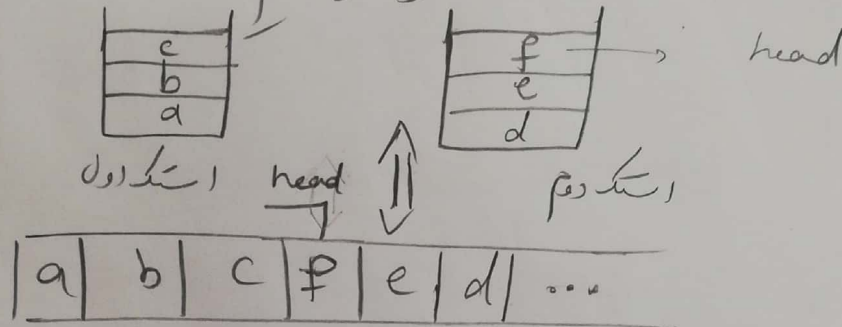 c f head
b e
a d
استک اول head استک دوم
a b c f e d ...